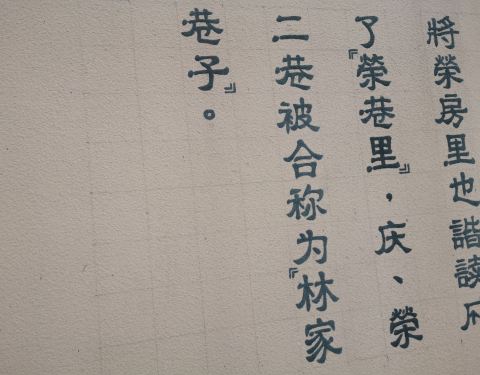 將榮房里也諧讀
了『榮巷里』，庆、榮
二巷被合称为『林家
巷子』。